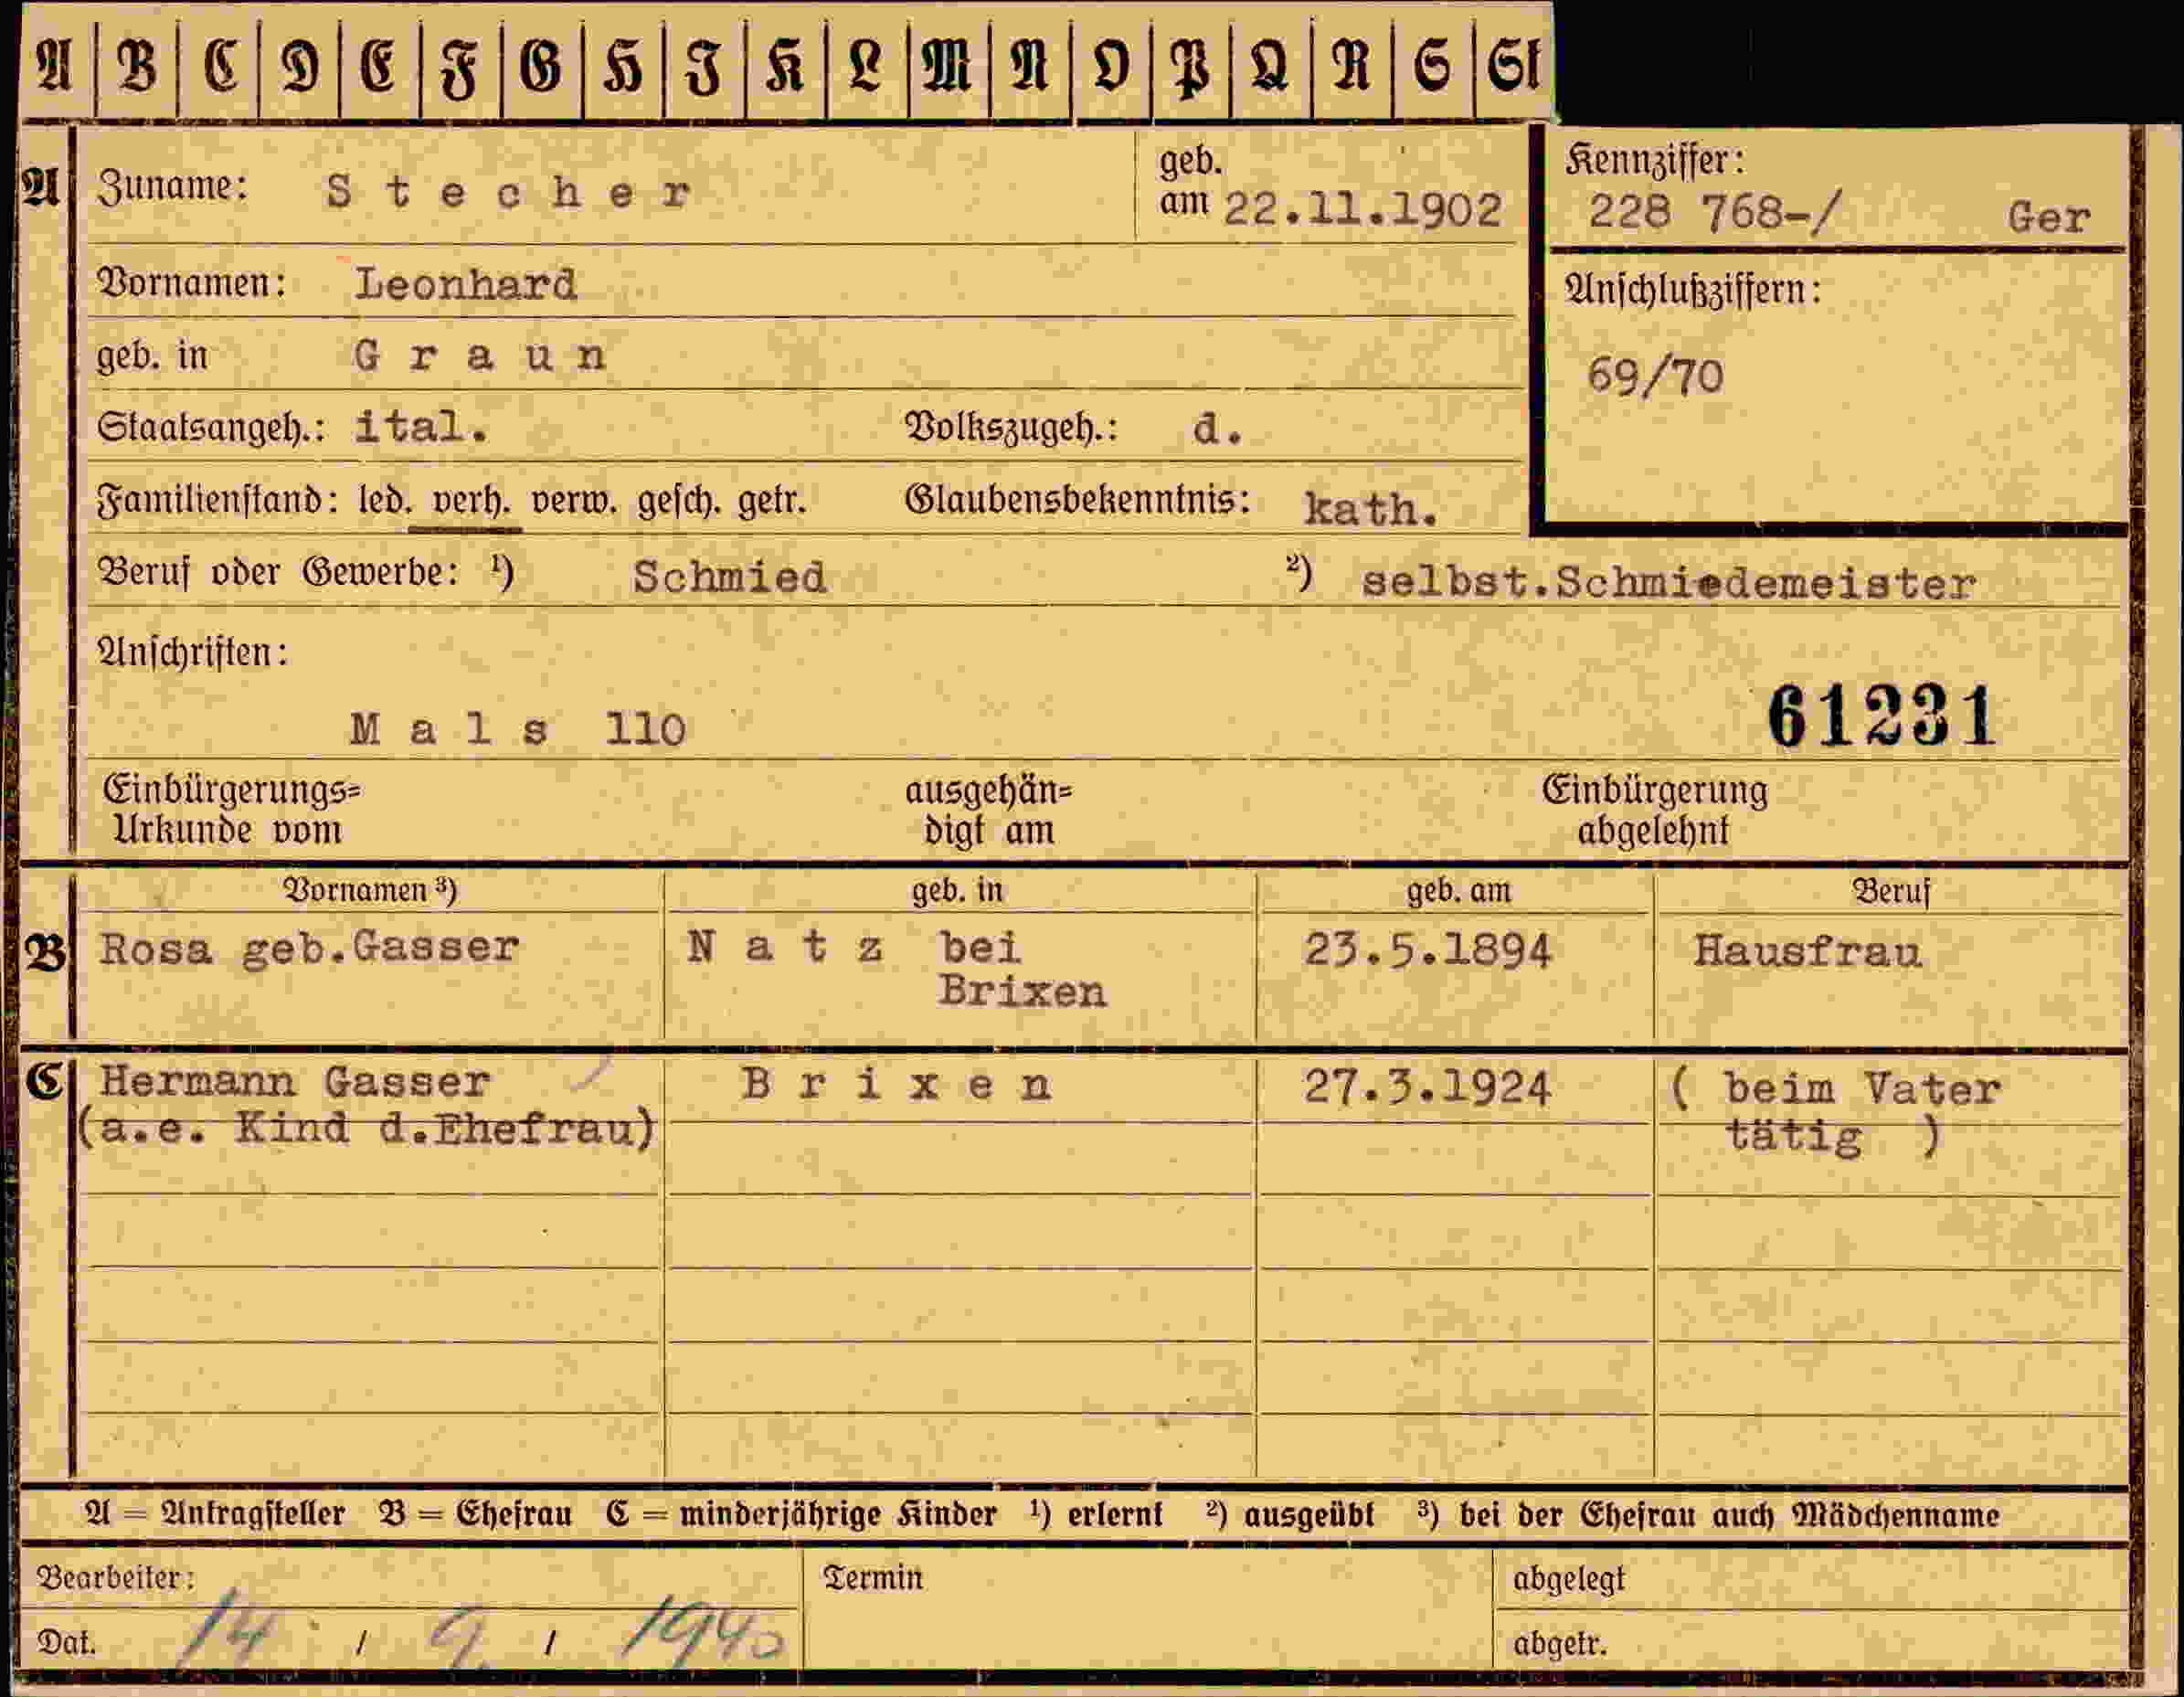 A B C D E F G H I K L M N O P Q R S St
A Zuname: Stecher geb. am 22.11.1902
Kennziffer: 228 768-/ Ger
Vornamen: Leonhard
Anschlußziffern:
geb. in Graun
69/70
Staatsangeh.: ital. Volkszugeh.: d.
Familienstand: led. verh. verw. gesch. getr. Glaubensbekenntnis: kath.
Beruf oder Gewerbe: ¹) Schmied ²) selbst.Schmiedemeister
Anschriften:
61231
Mals 110
Einbürgerungs= ausgehän= Einbürgerung
Urkunde vom digt am abgelehnt
Vornamen ³) geb. in geb. am Beruf
B Rosa geb.Gasser Natz bei 23.5.1894 Hausfrau
Brixen
C Hermann Gasser Brixen 27.3.1924 ( beim Vater
(a.e. Kind d.Ehefrau) tätig )
A = Antragsteller B = Ehefrau C = minderjährige Kinder ¹) erlernt ²) ausgeübt ³) bei der Ehefrau auch Mädchenname
Bearbeiter: Termin abgelegt
Dat. 14 / 9. / 1940 abgetr.